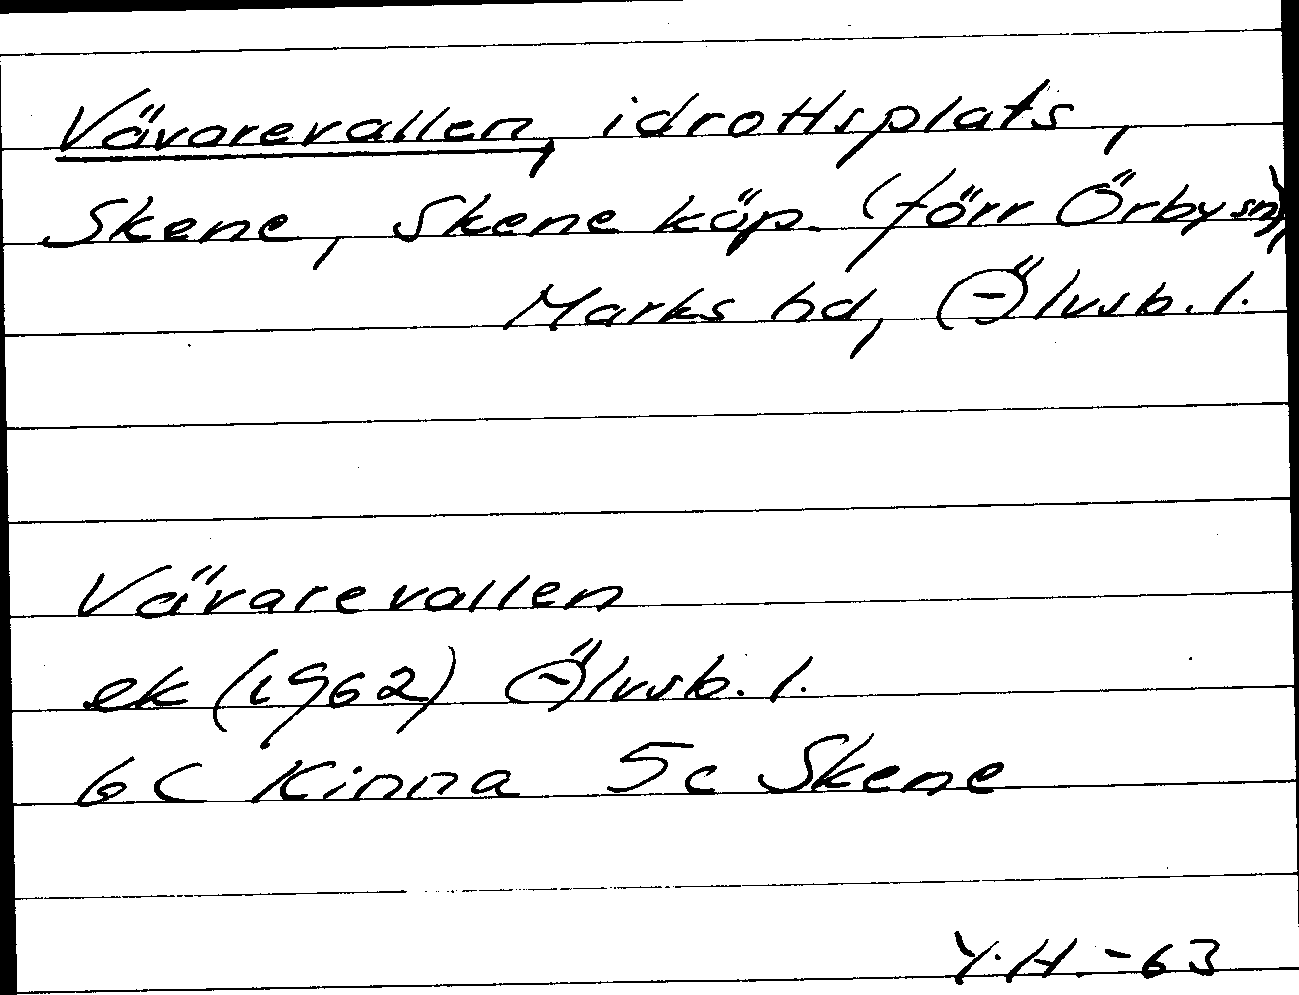 Vävarevallen, idrottsplats,
Skene, Skene köp. (förr Örby sn),
Marks hd, Älvsb. l.
Vävarevallen
ek (1962) Älvsb. l.
6 C Kinna 5c Skene
Y.H. -63